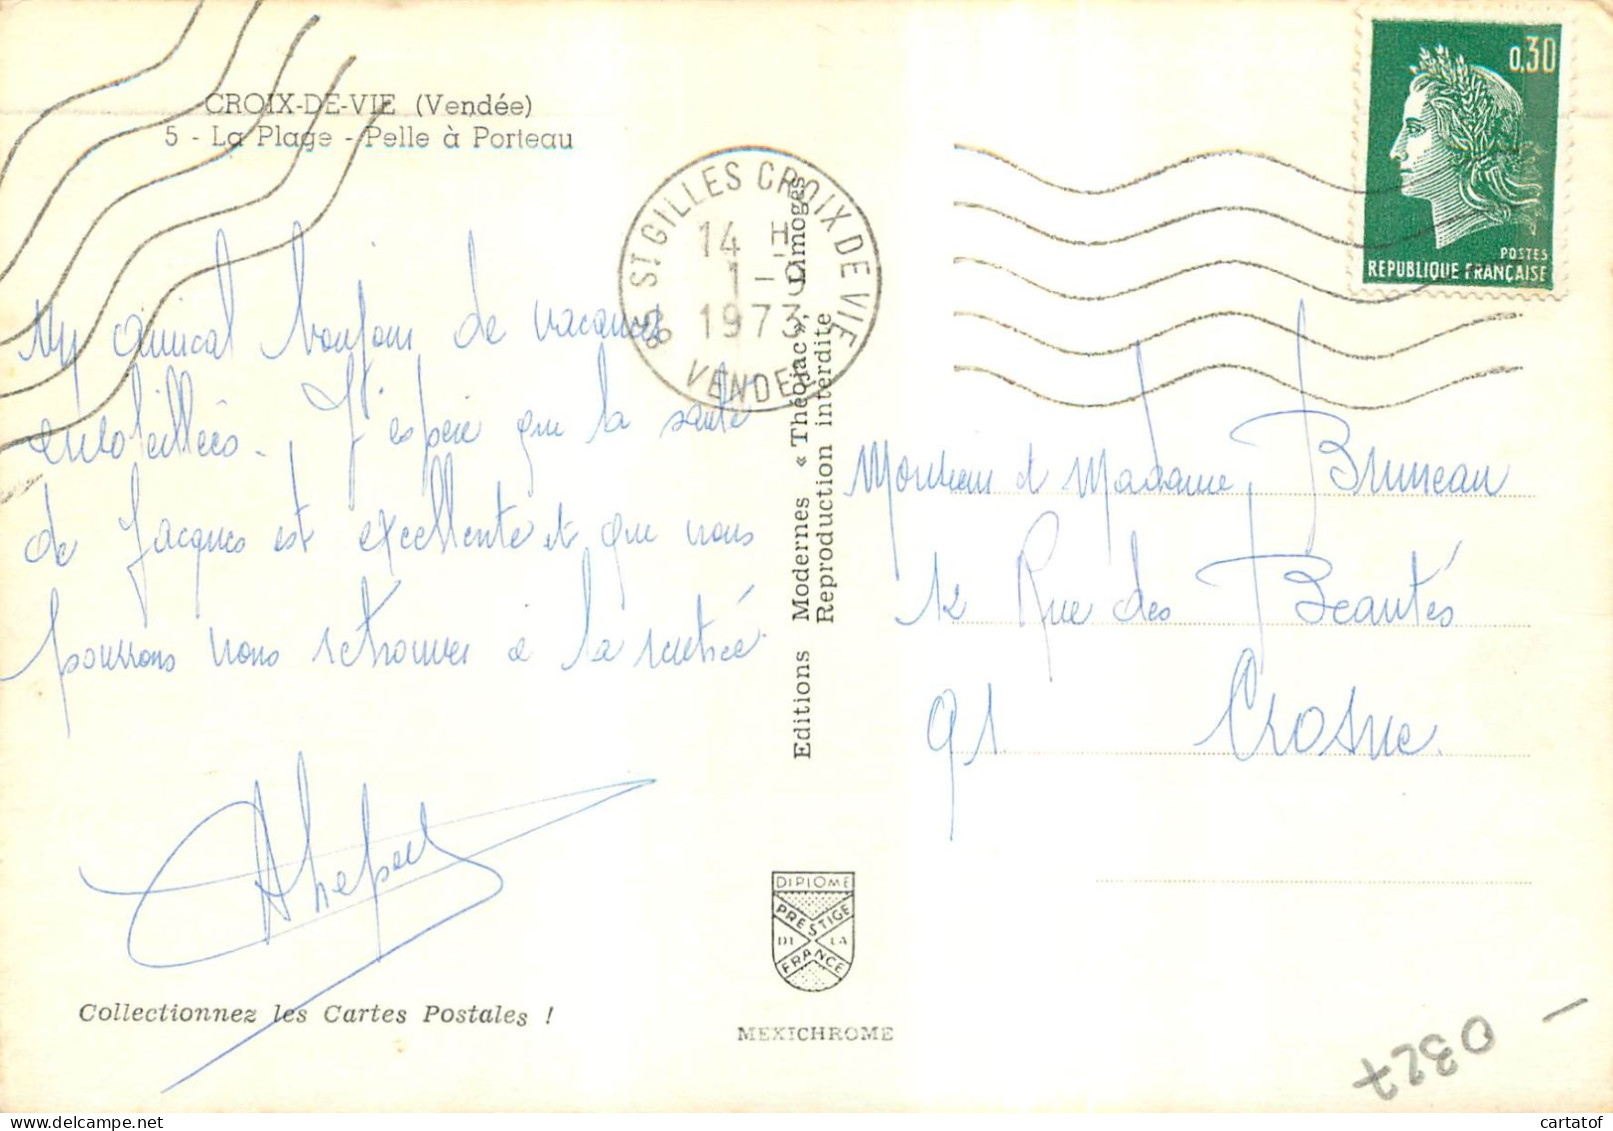 CROIX-DE-VIE (Vendée)
5 - La Plage - Pelle à Porteau
Un amical bonjour de vacances
ensoleillées. J'espère que la santé
de Jacques est excellente et que nous
pourrons nous retrouver à la rentrée
Collectionnez les Cartes Postales !
85 ST GILLES CROIX DE VIE
14 H
1 - 9
1973
VENDEE
Editions Modernes « Théojac », Limoges
Reproduction interdite
DIPLOME
PRESTIGE
DE LA
FRANCE
MEXICHROME
0,30
POSTES
REPUBLIQUE FRANÇAISE
Monsieur et Madame Bruneau
12 Rue des Beautés
91 Crosne
0327
cartatof